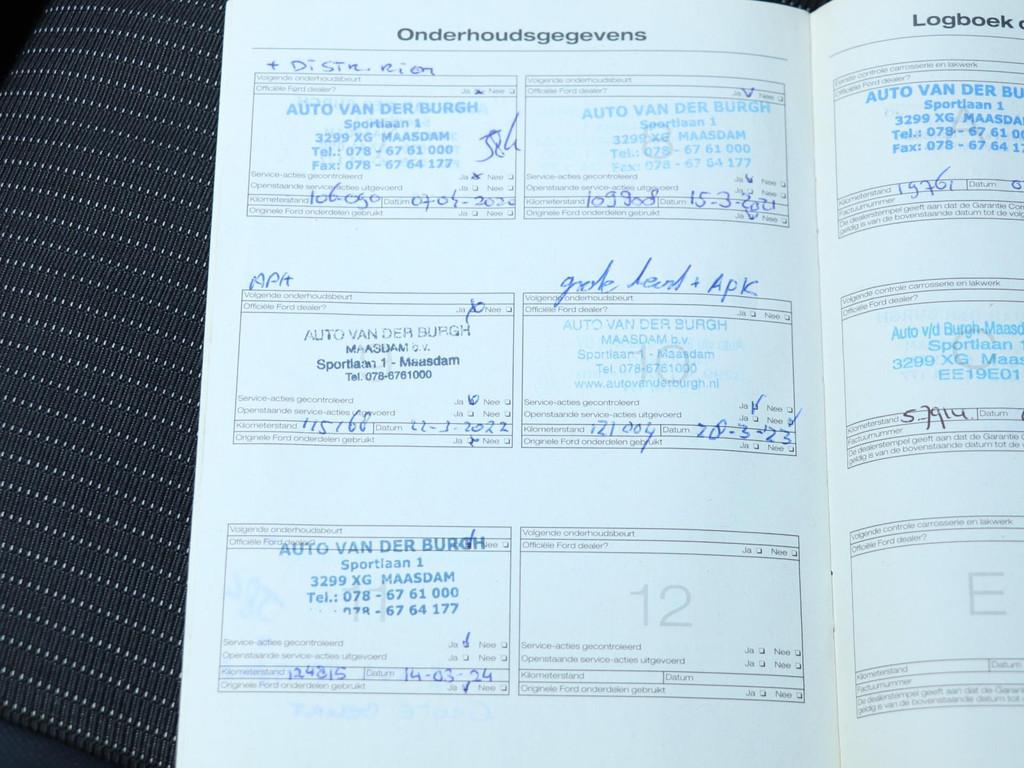 Onderhoudsgegevens
+ Distr. riem
Volgende onderhoudsbeurt
Officiële Ford dealer? Ja Nee
AUTO VAN DER BURGH
Sportlaan 1
3299 XG MAASDAM
Tel.: 078 - 67 61 000
Fax: 078 - 67 64 177
Service-acties gecontroleerd Ja Nee
Openstaande service-acties uitgevoerd Ja Nee
Kilometerstand 106090 Datum 07-04-2020
Originele Ford onderdelen gebruikt Ja Nee
Volgende onderhoudsbeurt
Officiële Ford dealer? Ja Nee
AUTO VAN DER BURGH
Sportlaan 1
3299 XG MAASDAM
Tel.: 078 - 67 61 000
Fax: 078 - 67 64 177
Service-acties gecontroleerd Ja Nee
Openstaande service-acties uitgevoerd Ja Nee
Kilometerstand 109908 Datum 15-3-2021
Originele Ford onderdelen gebruikt Ja Nee
APK
Volgende onderhoudsbeurt
Officiële Ford dealer? Ja Nee
AUTO VAN DER BURGH
MAASDAM b.v.
Sportlaan 1 - Maasdam
Tel. 078-6761000
Service-acties gecontroleerd Ja Nee
Openstaande service-acties uitgevoerd Ja Nee
Kilometerstand 115168 Datum 22-3-2022
Originele Ford onderdelen gebruikt Ja Nee
grote beurt + APK
Volgende onderhoudsbeurt
Officiële Ford dealer? Ja Nee
10
AUTO VAN DER BURGH
MAASDAM b.v.
Sportlaan 1 - Maasdam
Tel. 078-6761000
www.autovanderburgh.nl
Service-acties gecontroleerd Ja Nee
Openstaande service-acties uitgevoerd Ja Nee
Kilometerstand 121004 Datum 28-3-23
Originele Ford onderdelen gebruikt Ja Nee
Volgende onderhoudsbeurt
Officiële Ford dealer? Nee
AUTO VAN DER BURGH
Sportlaan 1
3299 XG MAASDAM
Tel.: 078 - 67 61 000
078 - 67 64 177
11
Service-acties gecontroleerd Ja Nee
Openstaande service-acties uitgevoerd Ja Nee
Kilometerstand 124815 Datum 14-03-24
Originele Ford onderdelen gebruikt Ja Nee
Volgende onderhoudsbeurt
Officiële Ford dealer? Ja Nee
12
Service-acties gecontroleerd Ja Nee
Openstaande service-acties uitgevoerd Ja Nee
Kilometerstand Datum
Originele Ford onderdelen gebruikt Ja Nee
Logboek
Eerste controle carrosserie en lakwerk
Officiële Ford dealer?
AUTO VAN DER BURG
Sportlaan 1
3299 XG MAASDA
Tel.: 078 - 67 61
Fax: 078 - 67
Kilometerstand 19761 Datum
Factuurnummer
De dealerstempel geeft aan dat de Garantie
geldig is van de bovenstaande datum tot de
Volgende controle carrosserie en lakwerk
Officiële Ford dealer?
Auto v/d Burgh-Maasd
Sportlaan
3299 XG Maas
EE19E01
Kilometerstand 57914 Datum
Factuurnummer
De dealerstempel geeft aan dat de Garantie
geldig is van de bovenstaande datum tot de
Volgende controle carrosserie en lakwerk
Officiële Ford dealer?
E
Kilometerstand Datum
Factuurnummer
De dealerstempel geeft aan dat de Garantie
geldig is van de bovenstaande datum tot de